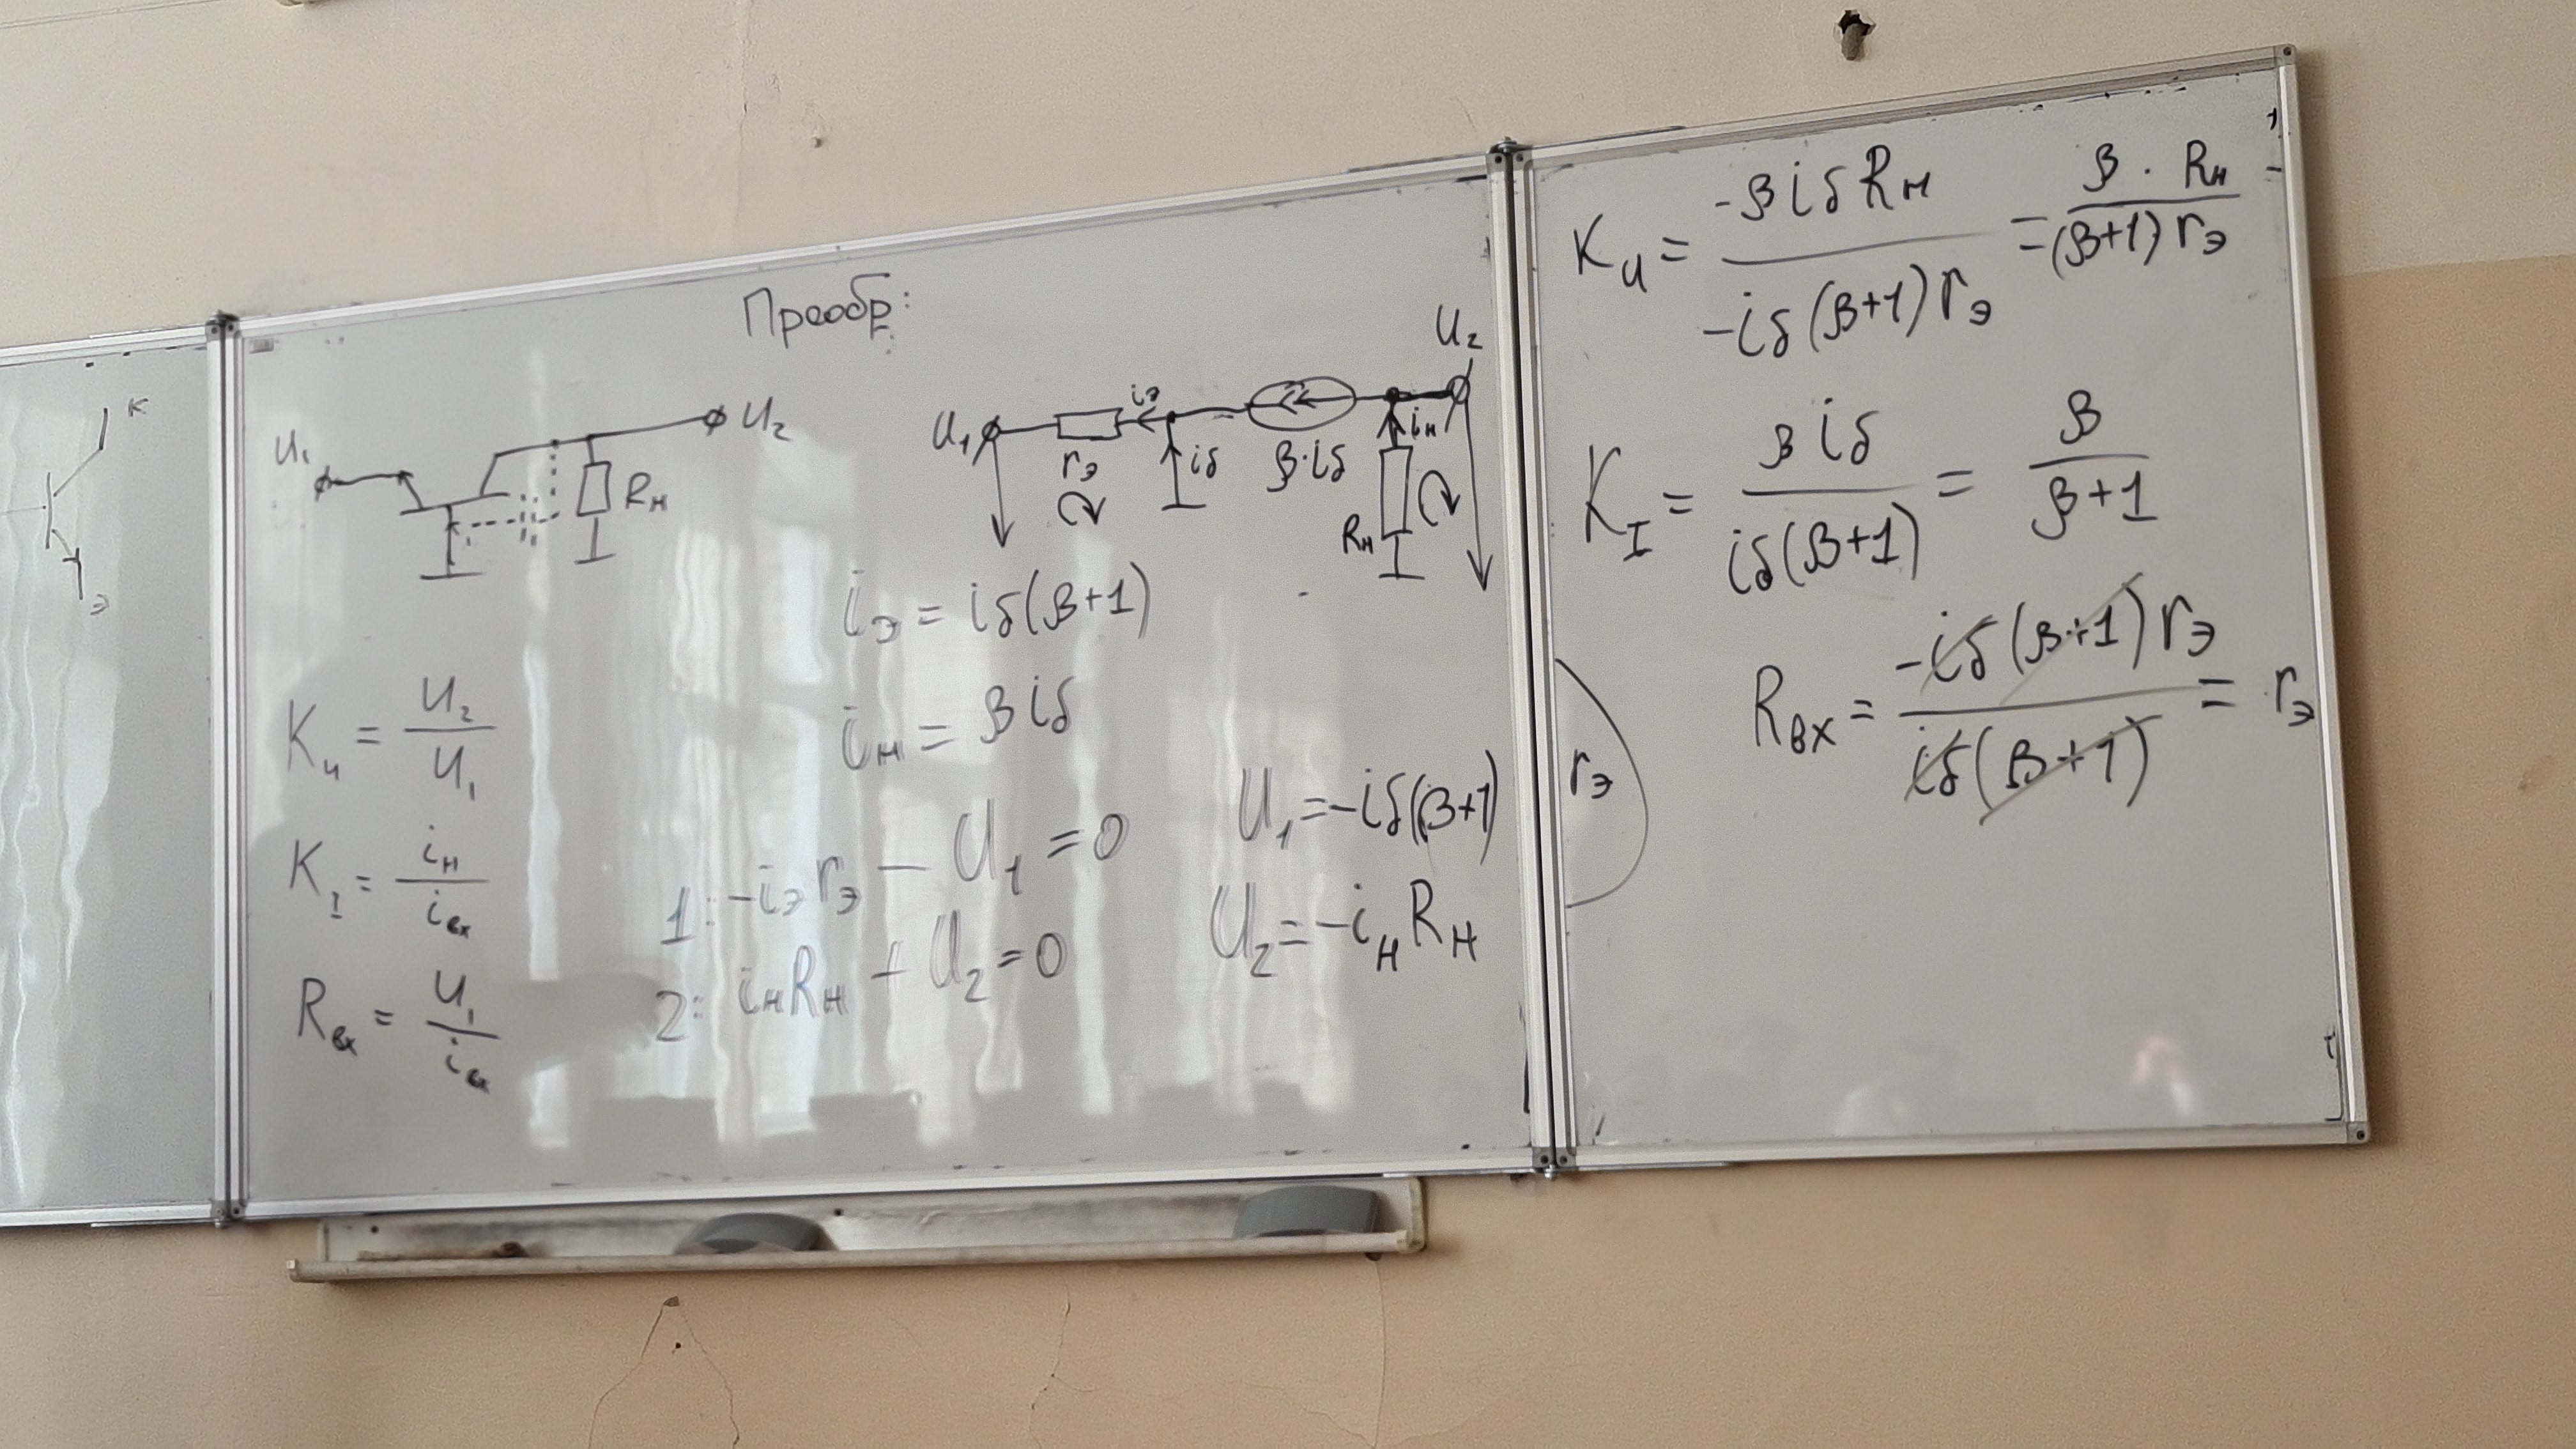 К
Э
Преобр:
U₁
U₂
Rн
U₁
rэ
iэ
iб
β·iб
iн
Rн
U₂
iэ = iб(β+1)
iн = βiб
Kᵤ = U₂/U₁
K_I = iн/iвх
Rвх = U₁/iвх
1: -iэrэ - U₁ = 0
2: iнRн + U₂ = 0
U₁ = -iб(β+1) rэ
U₂ = -iнRн
Kᵤ = -βiбRн / -iб(β+1)rэ = β · Rн / (β+1)rэ
K_I = βiб / iб(β+1) = β / β+1
Rвх = -iб(β+1)rэ / iб(β+1) = rэ